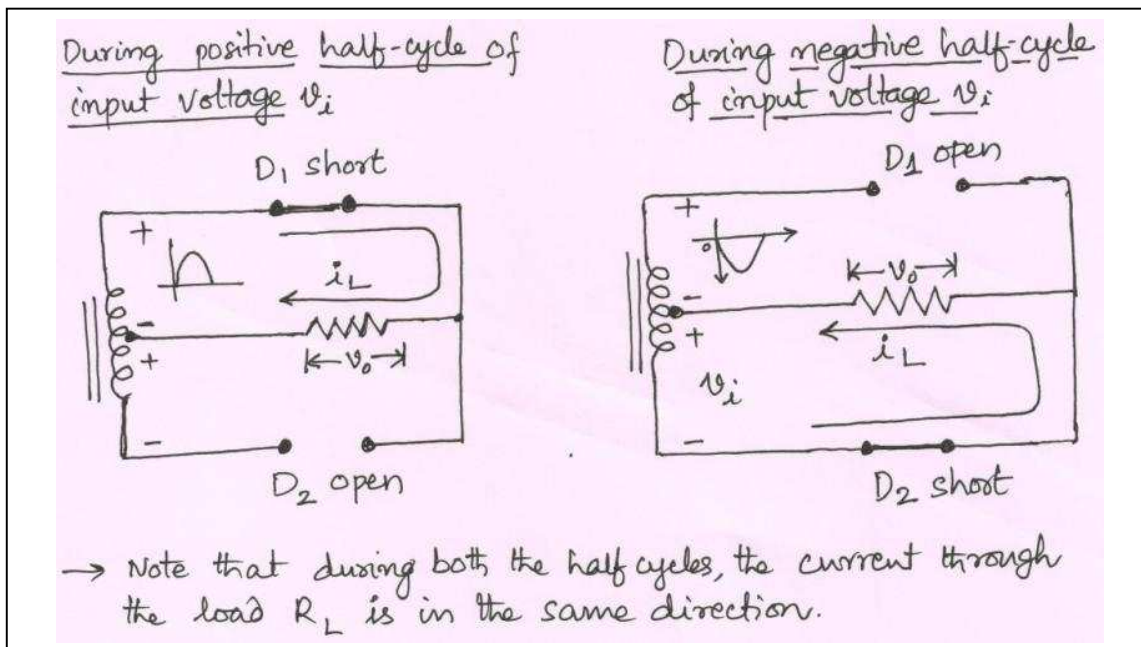 During positive half-cycle of
input voltage vi
D1 short
+
iL
-
+
v0
-
D2 open
During negative half-cycle
of input voltage vi
D1 open
+
0
v0
-
+
iL
vi
-
D2 short
→ Note that during both the half cycles, the current through
the load RL is in the same direction.